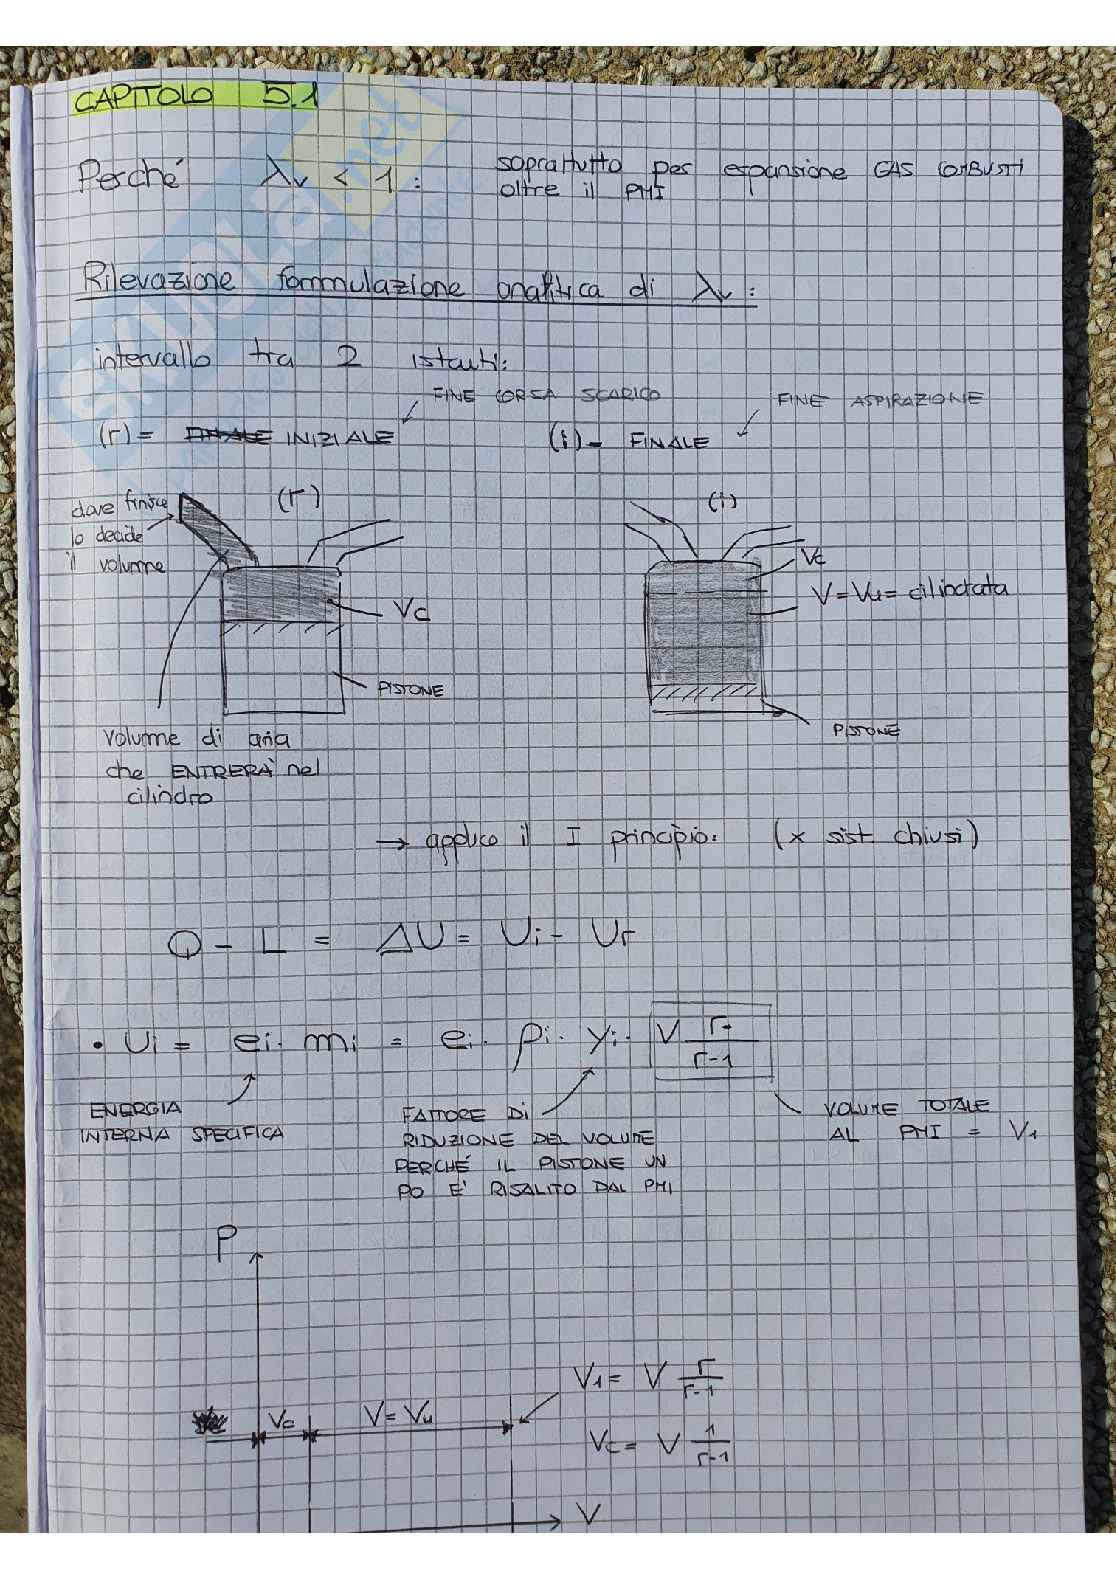 CAPITOLO 5.1
Perché λv < 1: soprattutto per espansione GAS COMBUSTI
oltre il PMI
Rilevazione formmulazione analitica di λv:
intervallo tra 2 istanti:
FINE CORSA SCARICO
FINE ASPIRAZIONE
(r) = FINALE INIZIALE
(i) = FINALE
dove finisce
lo decide
il volume
(r)
Vc
PISTONE
(i)
Vc
V = Vu = cilindrata
PISTONE
volume di aria
che ENTRERÀ nel
cilindro
→ applico il I principio: (x sist. chiusi)
Q - L = ΔU = Ui - Ur
• Ui = ei · mi = ei · ρi · yi · V r/(r-1)
ENERGIA
INTERNA SPECIFICA
FATTORE DI
RIDUZIONE DEL VOLUME
PERCHÉ IL PISTONE UN
PO E' RISALITO DAL PMI
VOLUME TOTALE
AL PMI = V1
P
V1 = V r/(r-1)
Vc
V = Vu
Vc = V 1/(r-1)
V